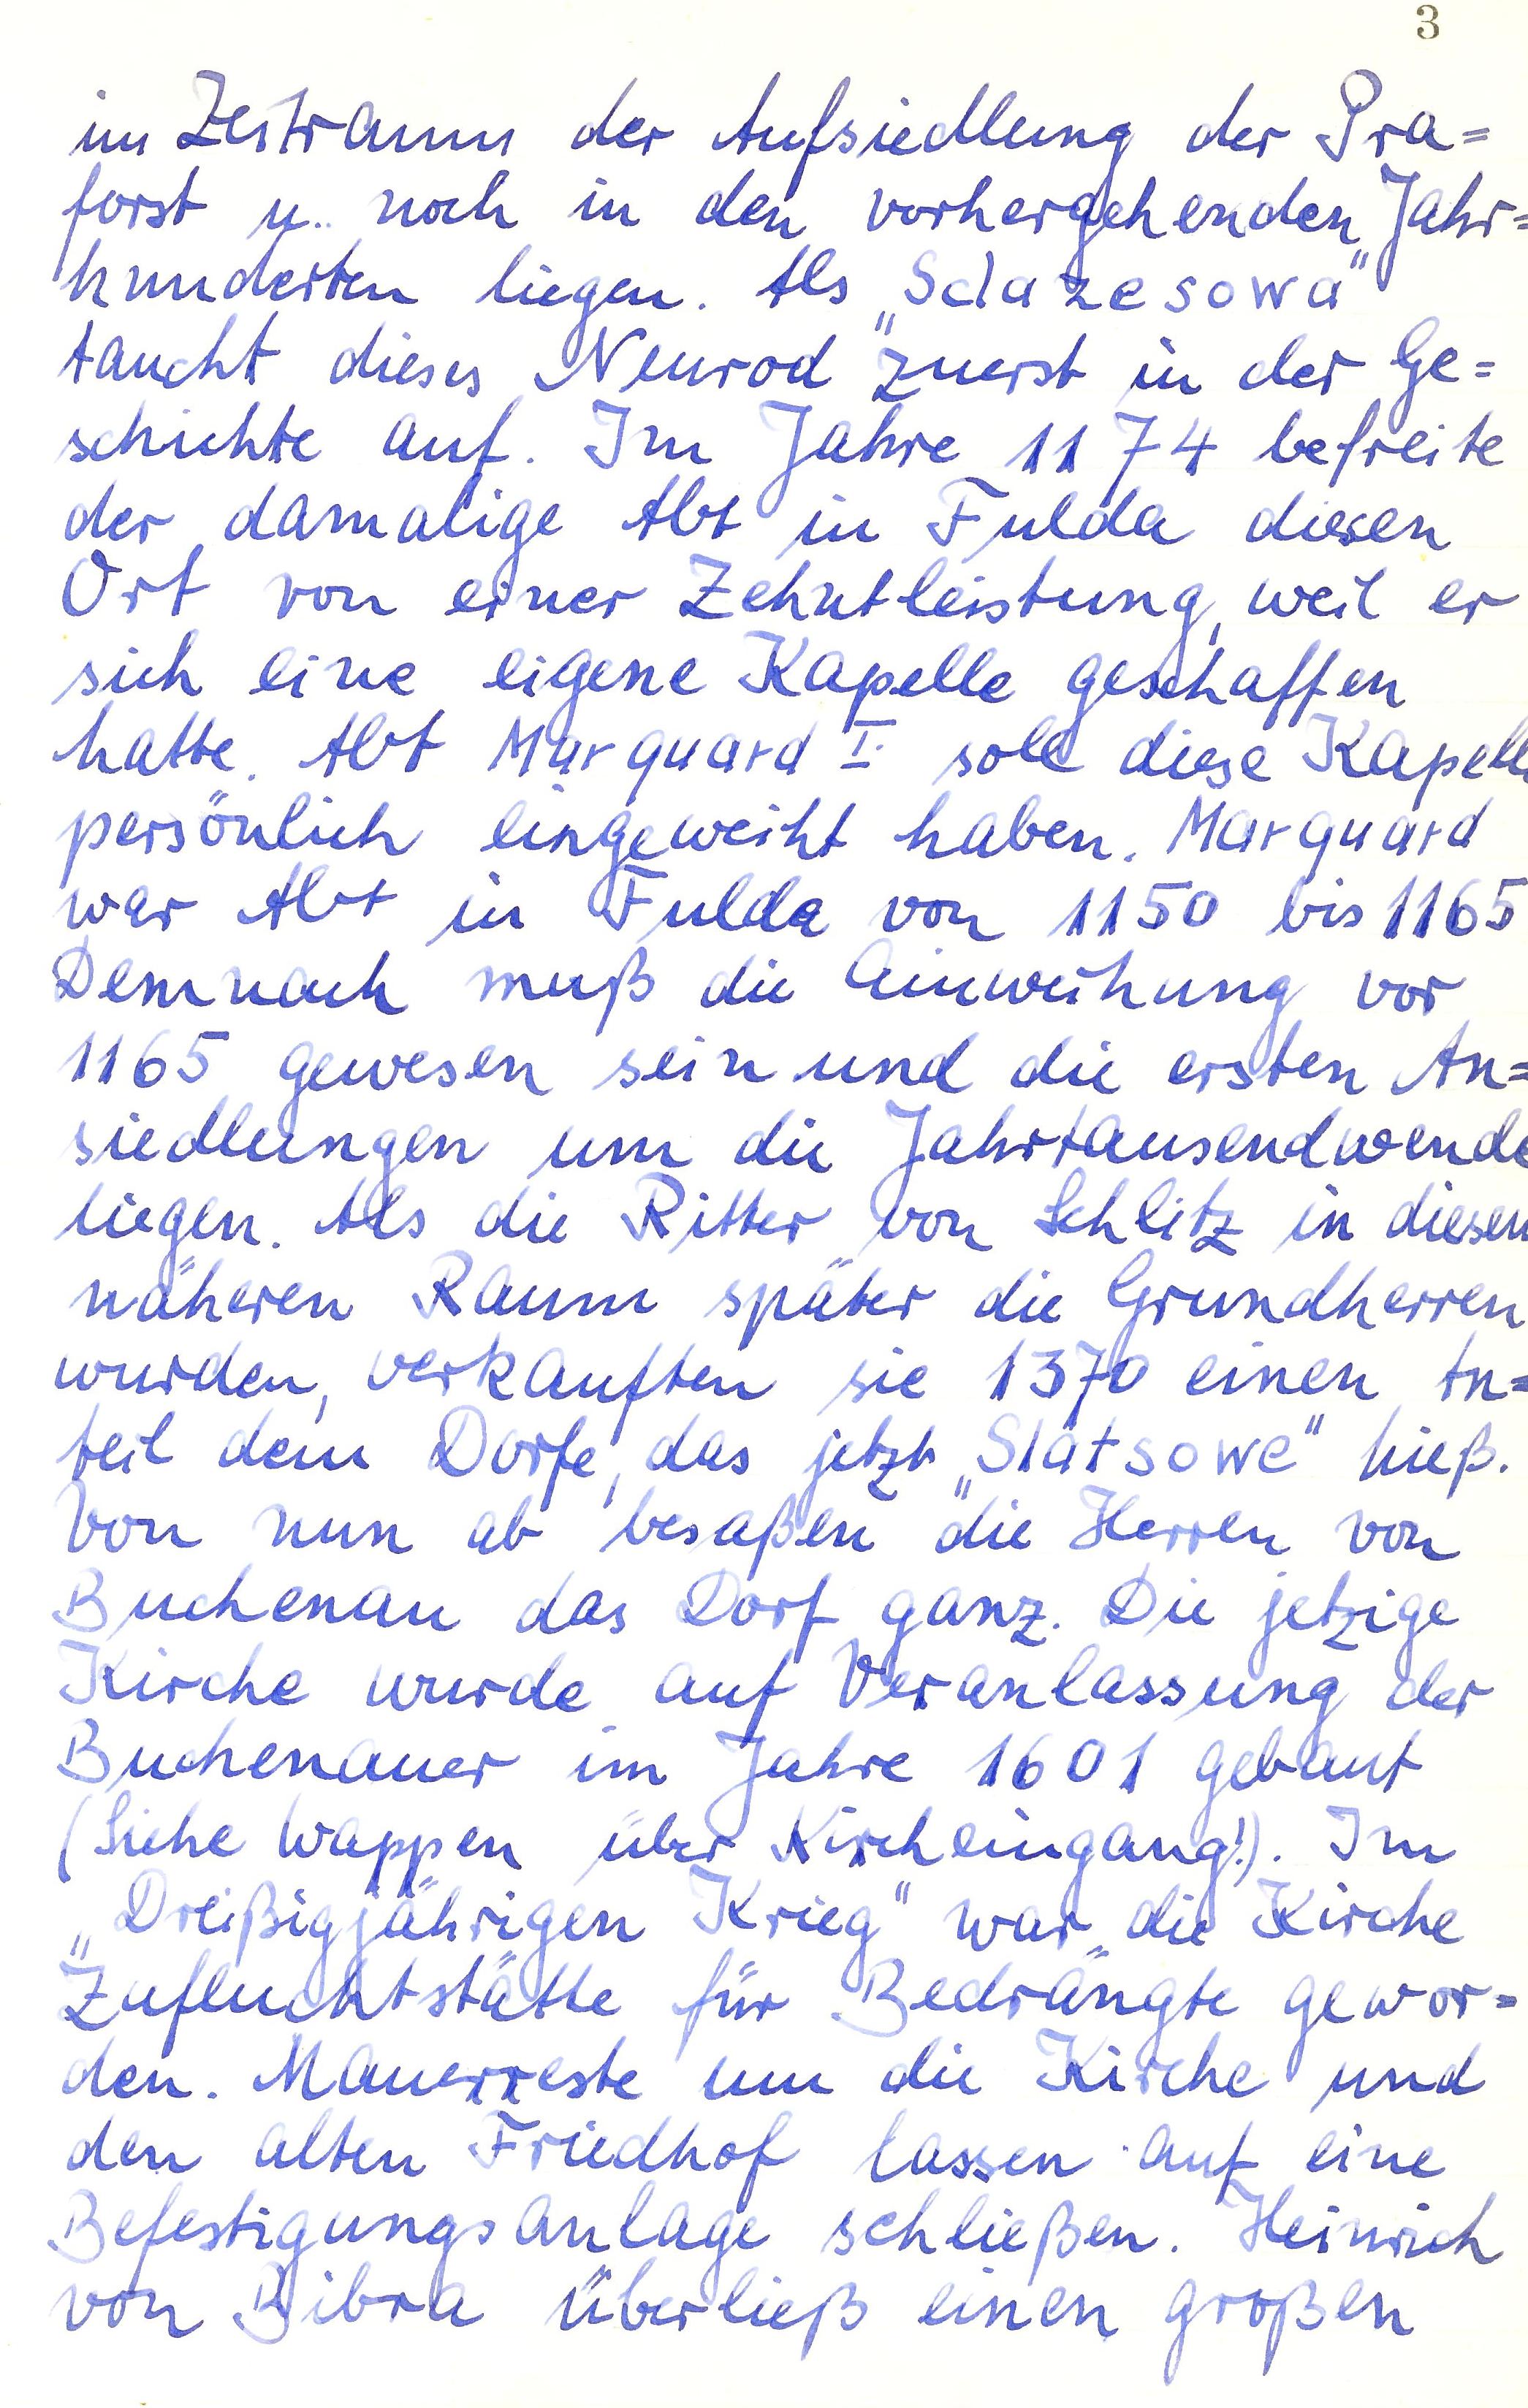 3
im Zeitraum der Aufsiedlung der Pra=
forst u. noch in den vorhergehenden Jahr=
hunderten liegen. Als „Sclazesowa"
taucht dieses Neurod zuerst in der Ge=
schichte auf. Im Jahre 1174 befreite
der damalige Abt in Fulda diesen
Ort von einer Zehntleistung, weil er
sich eine eigene Kapelle geschaffen
hatte. Abt Marquard I. soll diese Kapelle
persönlich eingeweiht haben. Marquard
war Abt in Fulda von 1150 bis 1165
Demnach muß die Einweihung vor
1165 gewesen sein und die ersten An=
siedlungen um die Jahrtausendwende
liegen. Als die Ritter von Schlitz in diesen
näheren Raum später die Grundherren
wurden, verkauften sie 1370 einen An=
teil dem Dorfe, das jetzt „Slatsowe" hieß.
Von nun ab besaßen die Herren von
Buchenau das Dorf ganz. Die jetzige
Kirche wurde auf Veranlassung der
Buchenauer im Jahre 1601 gebaut
(Siehe Wappen über Kircheingang!). Im
„Dreißigjährigen Krieg" war die Kirche
Zufluchtstätte für Bedrängte gewor=
den. Mauerreste um die Kirche und
den alten Friedhof lassen auf eine
Befestigungsanlage schließen. Heinrich
von Bibra überließ einen großen